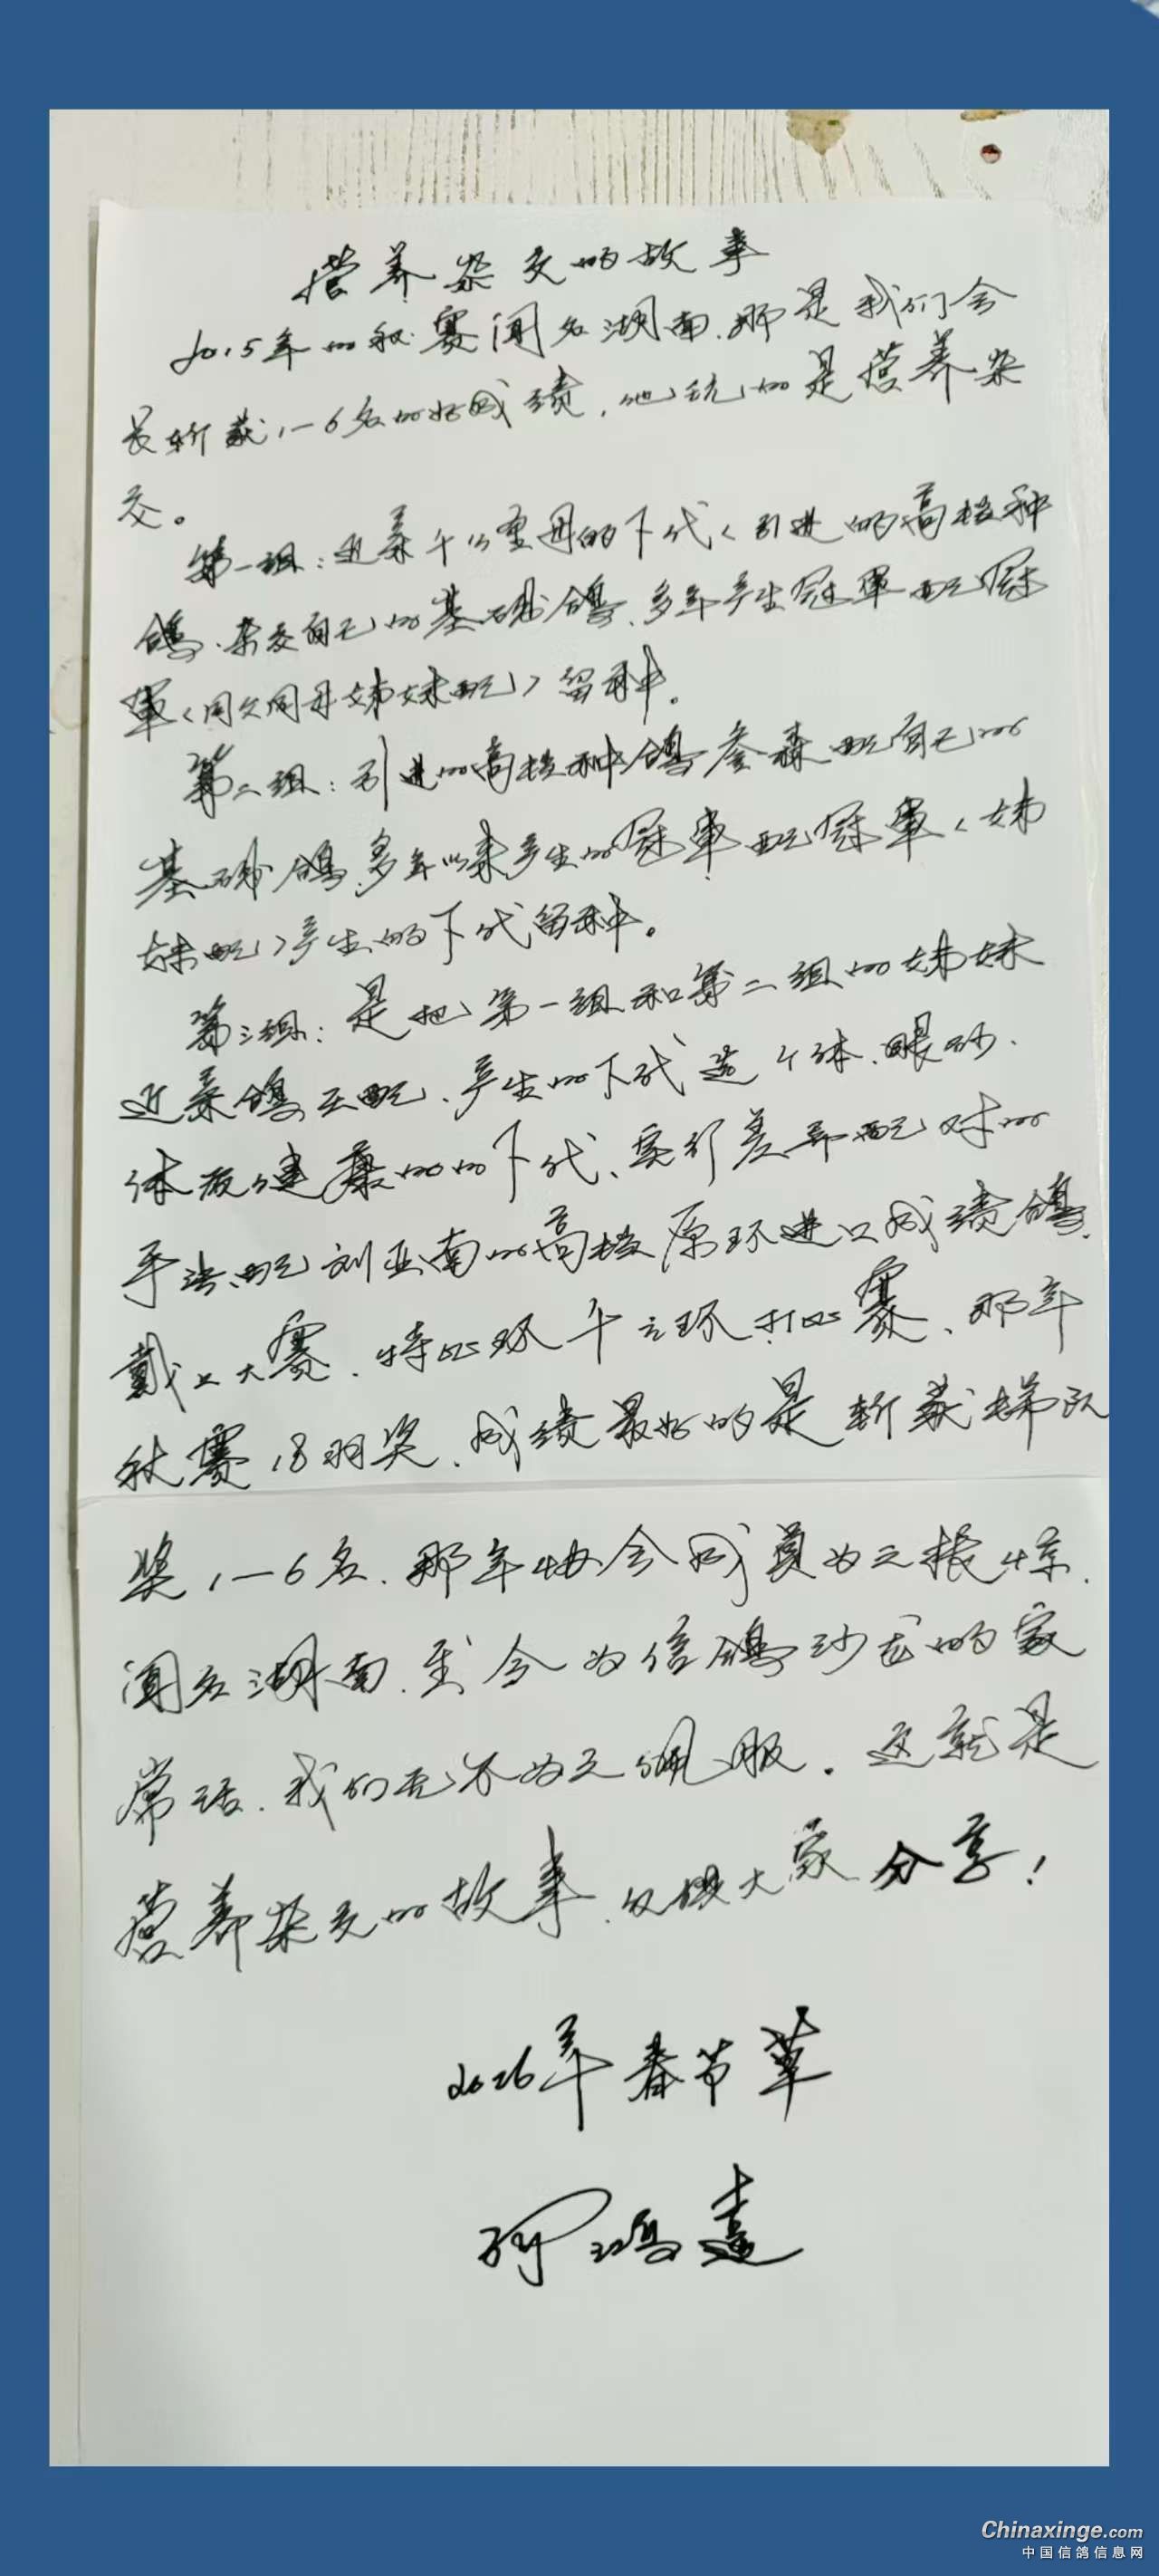 营养杂交的故事
2015年的秋赛闻名湖南、那是我们会
长斩获1-6名的好成绩,他玩的是营养杂
交。
第一组:近亲 重 的下代<引进的高档种
鸽、杂交自己的基础鸽、多年产生冠军配冠
军<同父同母姊妹配>留种。
第二组:引进的高档种鸽詹森配自己的
基础鸽、多年以来产生的冠军配冠军<姊
妹配>产生的下代留种。
第三组:是把第一组和第二组的姊妹
近亲鸽互配、产生的下代选个体、眼砂、
体质健康的的下代、实行差异配对的
手法、配刘亚南的高档原环进口成绩鸽、
戴上大赛、特比环 环、打比赛、那年
秋赛18羽奖、成绩最好的是斩获梯队
奖1-6名、那年协会成员为之振惊、
闻名湖南、至今为信鸽沙龙的家
常话、我们无不为之佩服。这就是
营养杂交的故事、仅供大家分享!
2026年春节草
鸿達
Chinaxinge.com
中国信鸽信息网